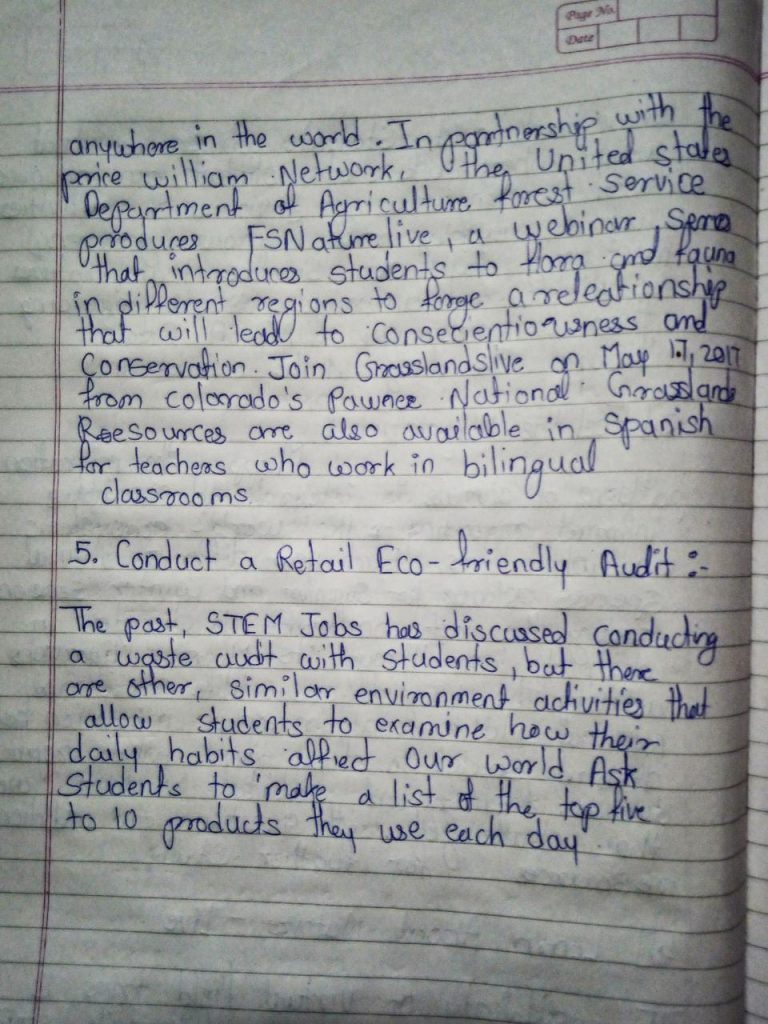 Page No.
Date
anywhere in the world. In partnership with the
price william Network, the United states
Department of Agriculture forest service
produces FSNature live, a webinar,
that introduces students to flora and fauna
in different regions to forge a releationship
that will lead to consecientiousness and
Conservation. Join Grasslandslive on May 17, 2017
from colorado's Pawnee National Grasslands
Reesources are also available in Spanish
for teachers who work in bilingual
classrooms.
5. Conduct a Retail Eco-friendly Audit :-
The past, STEM Jobs has discussed conducting
a waste audt with students, but there
are other, similar environment activities that
allow students to examine how their
daily habits affect our world Ask
Students to make a list of the top five
to 10 products they use each day.